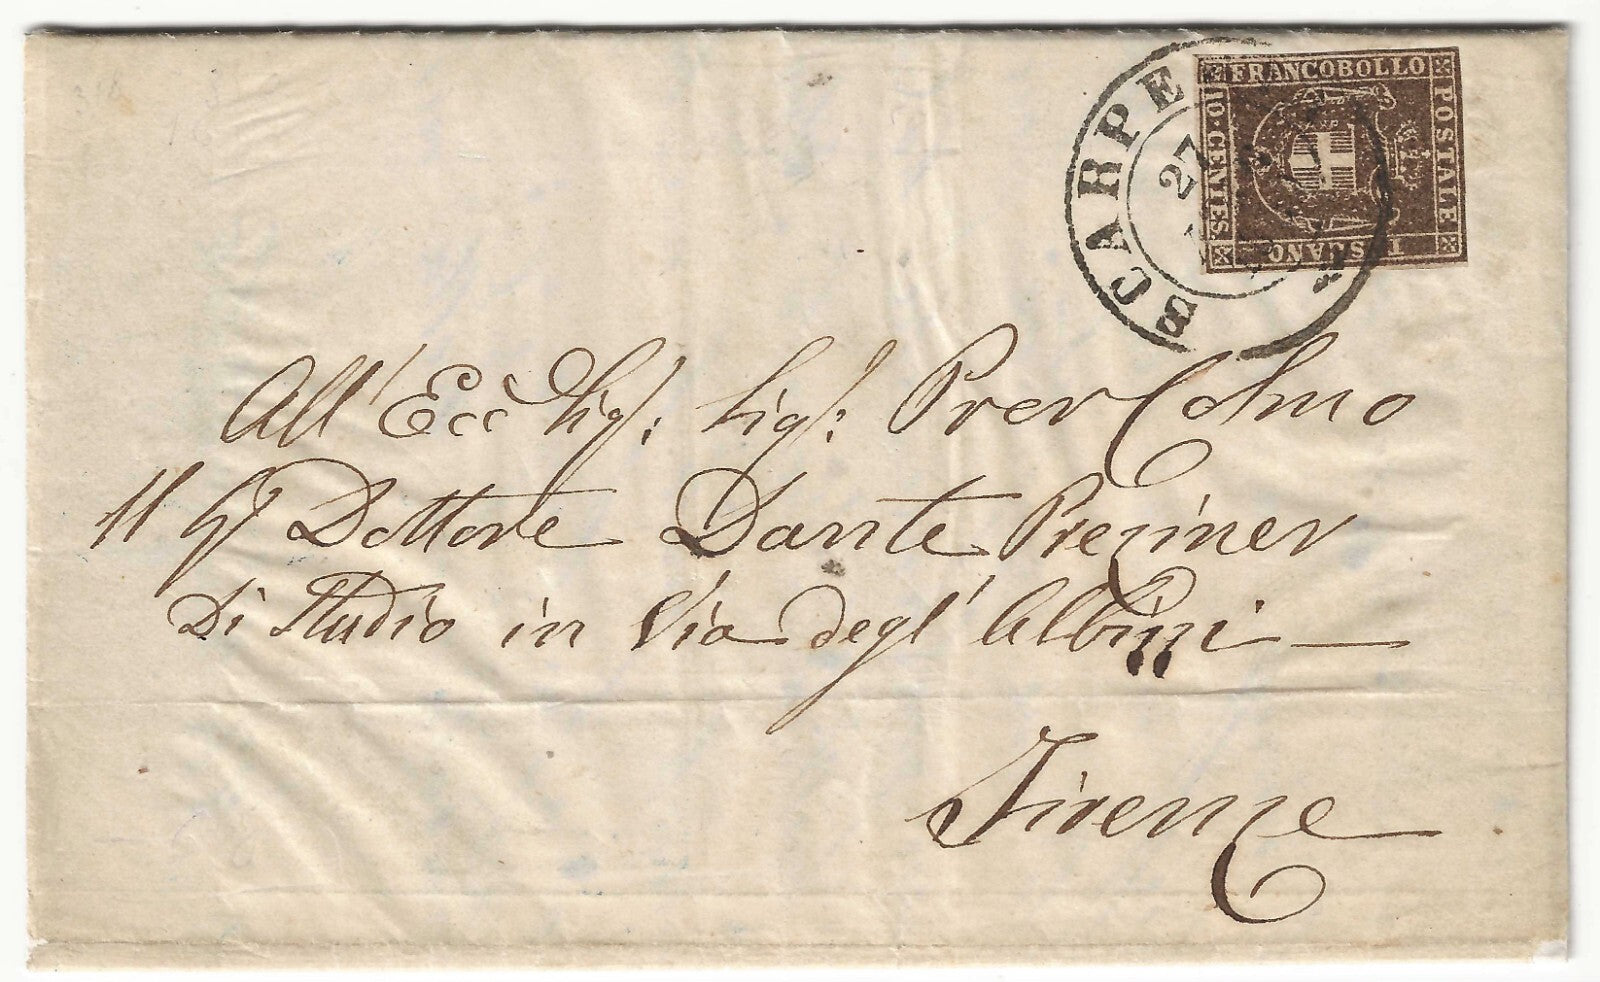 SCARPE
27
FRANCOBOLLO
POSTALE
TOSCANO
10·CENTES.
All' Ecc Sig: Sig: Pron Colmo
Il Sig Dottore Dante
Di Studio in Via degl' Albizzi
Firenze